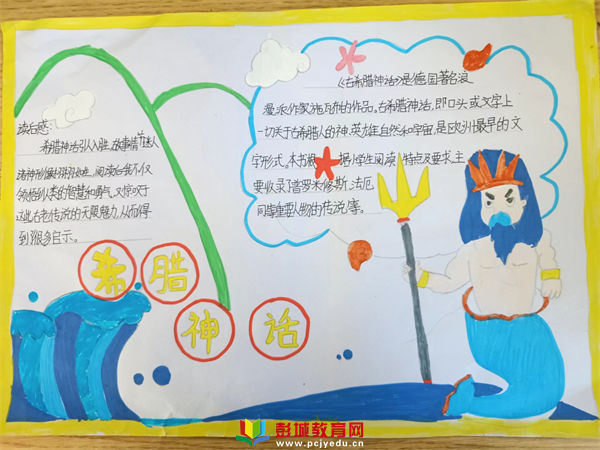 读后感:
希腊神话引人入胜,故事情节迷人
诸神形象栩栩如生,阅读后我不仅
领悟到人类的智慧和勇气,又惊叹于
这些古老传说的无限魅力,从而得
到很多启示。
《古希腊神话》是德国著名浪
漫派作家施瓦布的作品。古希腊神话,即口头或文字上
一切关于古希腊人的神、英雄、自然和宇宙,是欧洲最早的文
学形式。本书根据小学生阅读特点及要求主
要收录了普罗米修斯、法厄
同等重要人物的传说等。
希腊
神话
彭城教育网
www.pcjyedu.cn